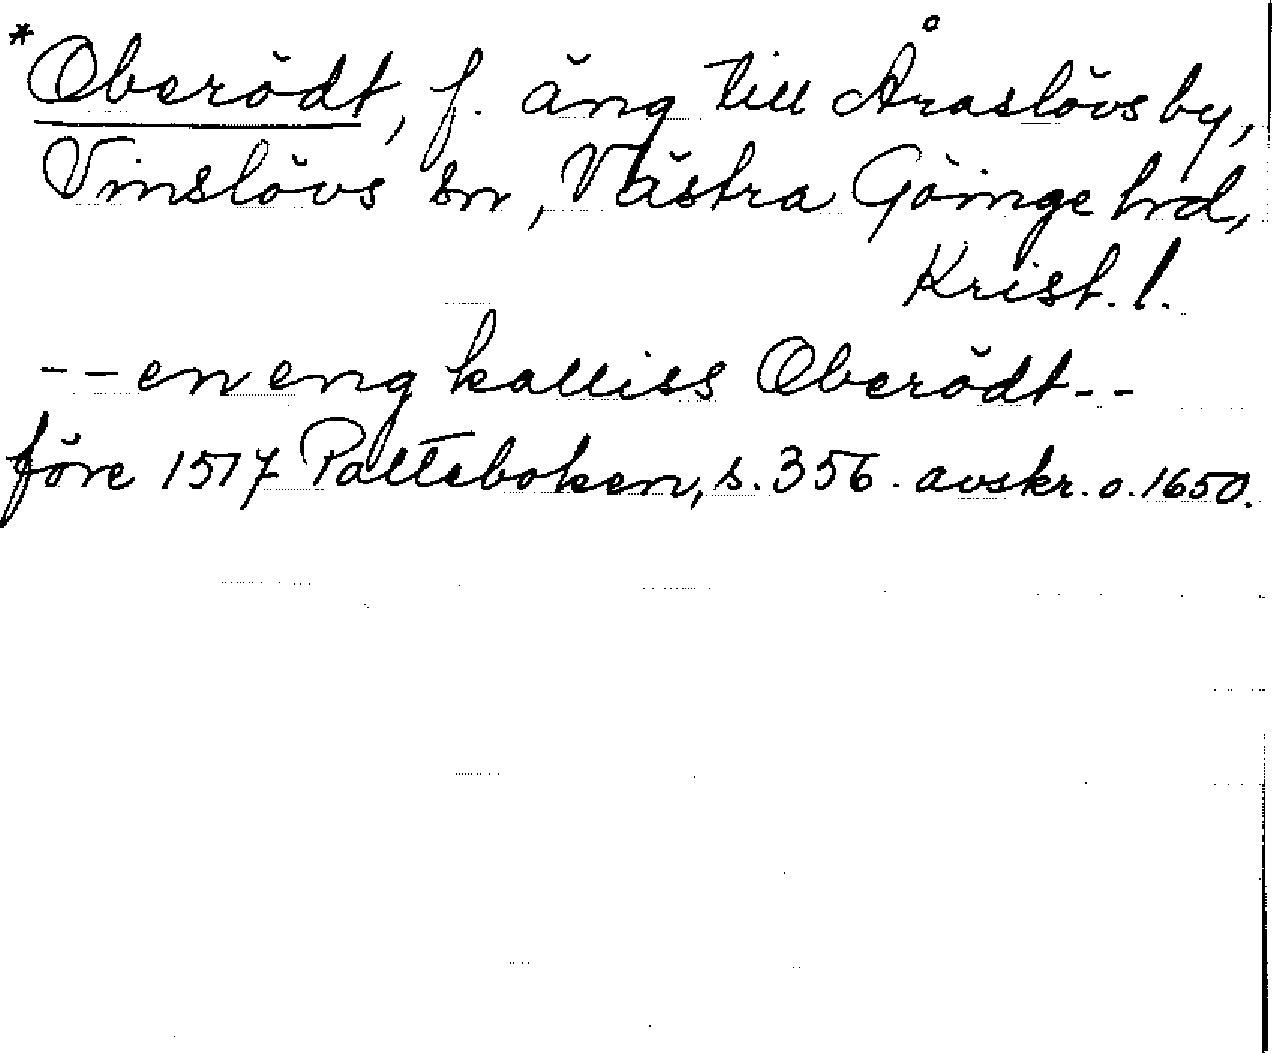 *Oberödt, f. äng till Åraslövs by,
Vinslövs sn, Västra Göinge hrd,
Krist. l.
-- en eng kalliss Oberödt --
före 1517 Palteboken, s. 356. avskr. o. 1650.